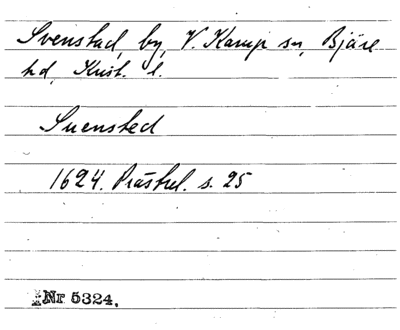 Svenstad, by, V. Karup sn, Bjäre
hd, Krist. l.
Suensted
1624. Prästrel. s. 25
Nr 5324.